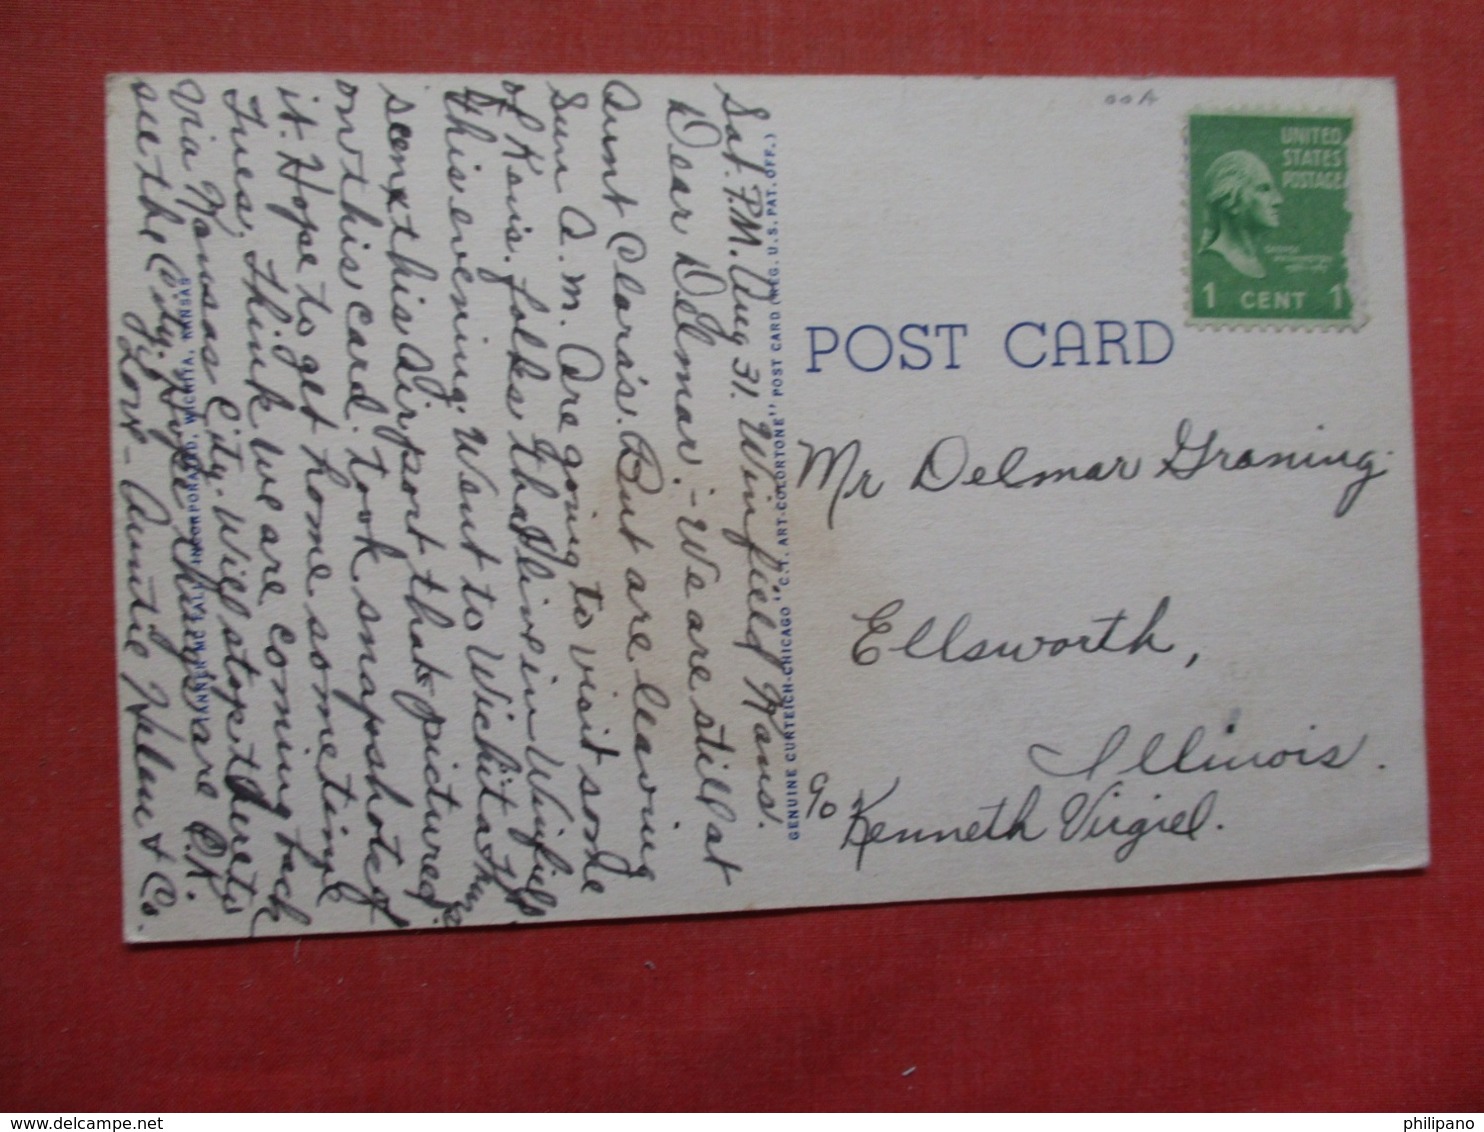 Sat. P.M. Aug 31. Winfield Kans.
Dear Delmar:- We are still at
Aunt Clara's. But are leaving
Sun A.M. Are going to visit some
of Kan's. folks that live in Winfield
this evening. Went to Wichita Thurs
seen this Airport that's pictured
on this card. took snapshots of
it. Hope to get home sometime
Tues, think we are coming back
Via Kansas City. Will stop there to
see the City. Hope things are O.K.
Love - Auntie Helen & Co.
GENUINE CURTEICH-CHICAGO "C.T. ART-COLORTONE" POST CARD (REG. U.S. PAT. OFF.)
INCORPORATED, WICHITA, KANSAS
00A
UNITED
STATES
POSTAGE
1 CENT 1
POST CARD
Mr Delmar Graning.
Ellsworth,
Illinois.
c/o Kenneth Virgiel.
philipano
delcampe.net